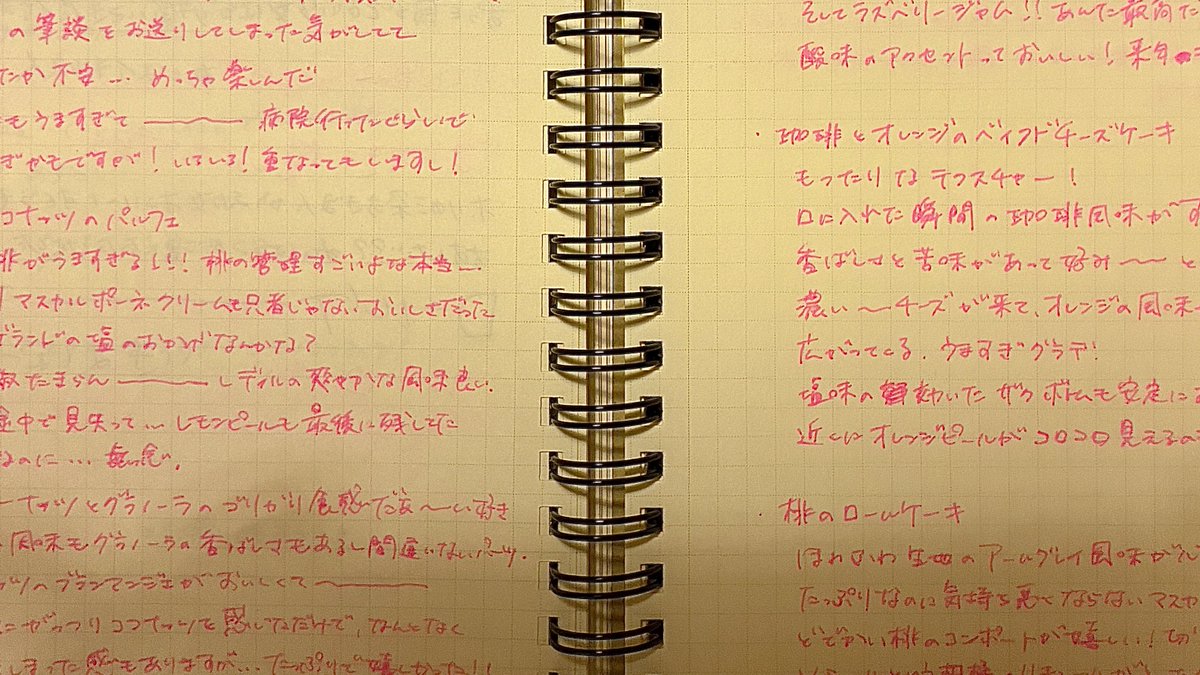 の筆談をお送りしてしまった気がしてて
たか不安… めっちゃ楽しんだ
もうますぎて〜〜〜 病院行ったぐらいで
ぎかもですが! いろいろ! 重なってもしますし!
ココナッツのパルフェ
桃がうますぎる!!! 桃の管理すごいよな本当…
マスカルポーネクリームも只者じゃないおいしさだった
ゲランドの塩のおかげなんかな?
たまらん〜〜〜 しディルの爽やかな風味良い.
途中で見失って… レモンピールも最後に残してた
なのに…
ーナッツとグラノーラのゴリガリ食感だぁ〜い好き
風味もグラノーラの香ばしさもあるし間違いないパーツ.
ッツのブランマンジェがおいしくて〜〜〜
にがっつりココナッツを感じただけで, なんとなく
しまった感もありますが… たっぷりで嬉しかった!!
そしてラズベリージャム!! あんた最高だ
酸味のアクセントっておいしい! 来年
・珈琲とオレンジのベイクドチーズケーキ
もったりなテクスチャー!
口に入れた瞬間の珈琲風味がす
香ばしさと苦味があって好み〜〜 と
濃い〜チーズが来て、オレンジの風味
広がってくる. うますぎグラデ!
塩味の効いたザクボトムも安定に
近くにオレンジピールがコロコロ見えるの
・桃のロールケーキ
ほわひわ生地のアールグレイ風味が
たっぷりなのに気持ち悪くならないマスカ
どでかい桃のコンポートが嬉しい! 切